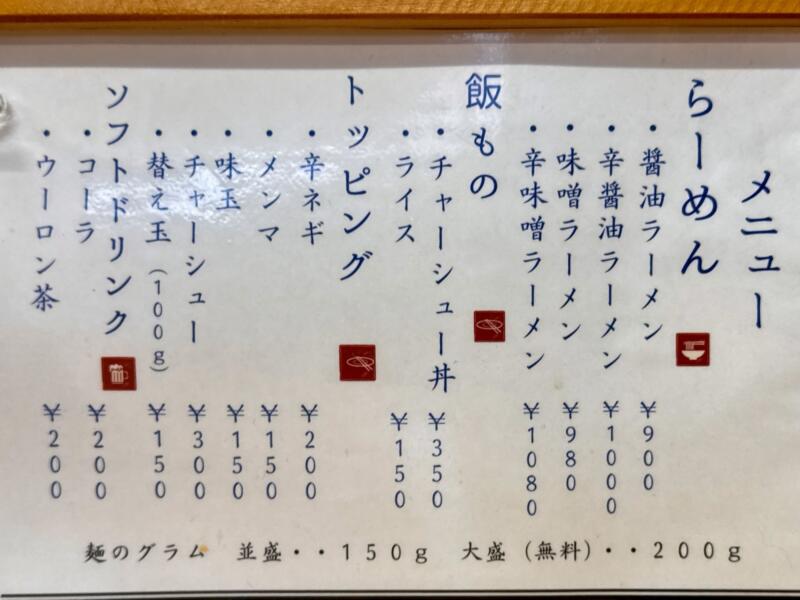 メニュー
らーめん
・醤油ラーメン ￥900
・辛醤油ラーメン ￥1000
・味噌ラーメン ￥980
・辛味噌ラーメン ￥1080
飯もの
・チャーシュー丼 ￥350
・ライス ￥150
トッピング
・辛ネギ ￥200
・メンマ ￥150
・味玉 ￥150
・チャーシュー ￥300
・替え玉（100g） ￥150
ソフトドリンク
・コーラ ￥200
・ウーロン茶 ￥200
麺のグラム 並盛・・150g 大盛（無料）・・200g